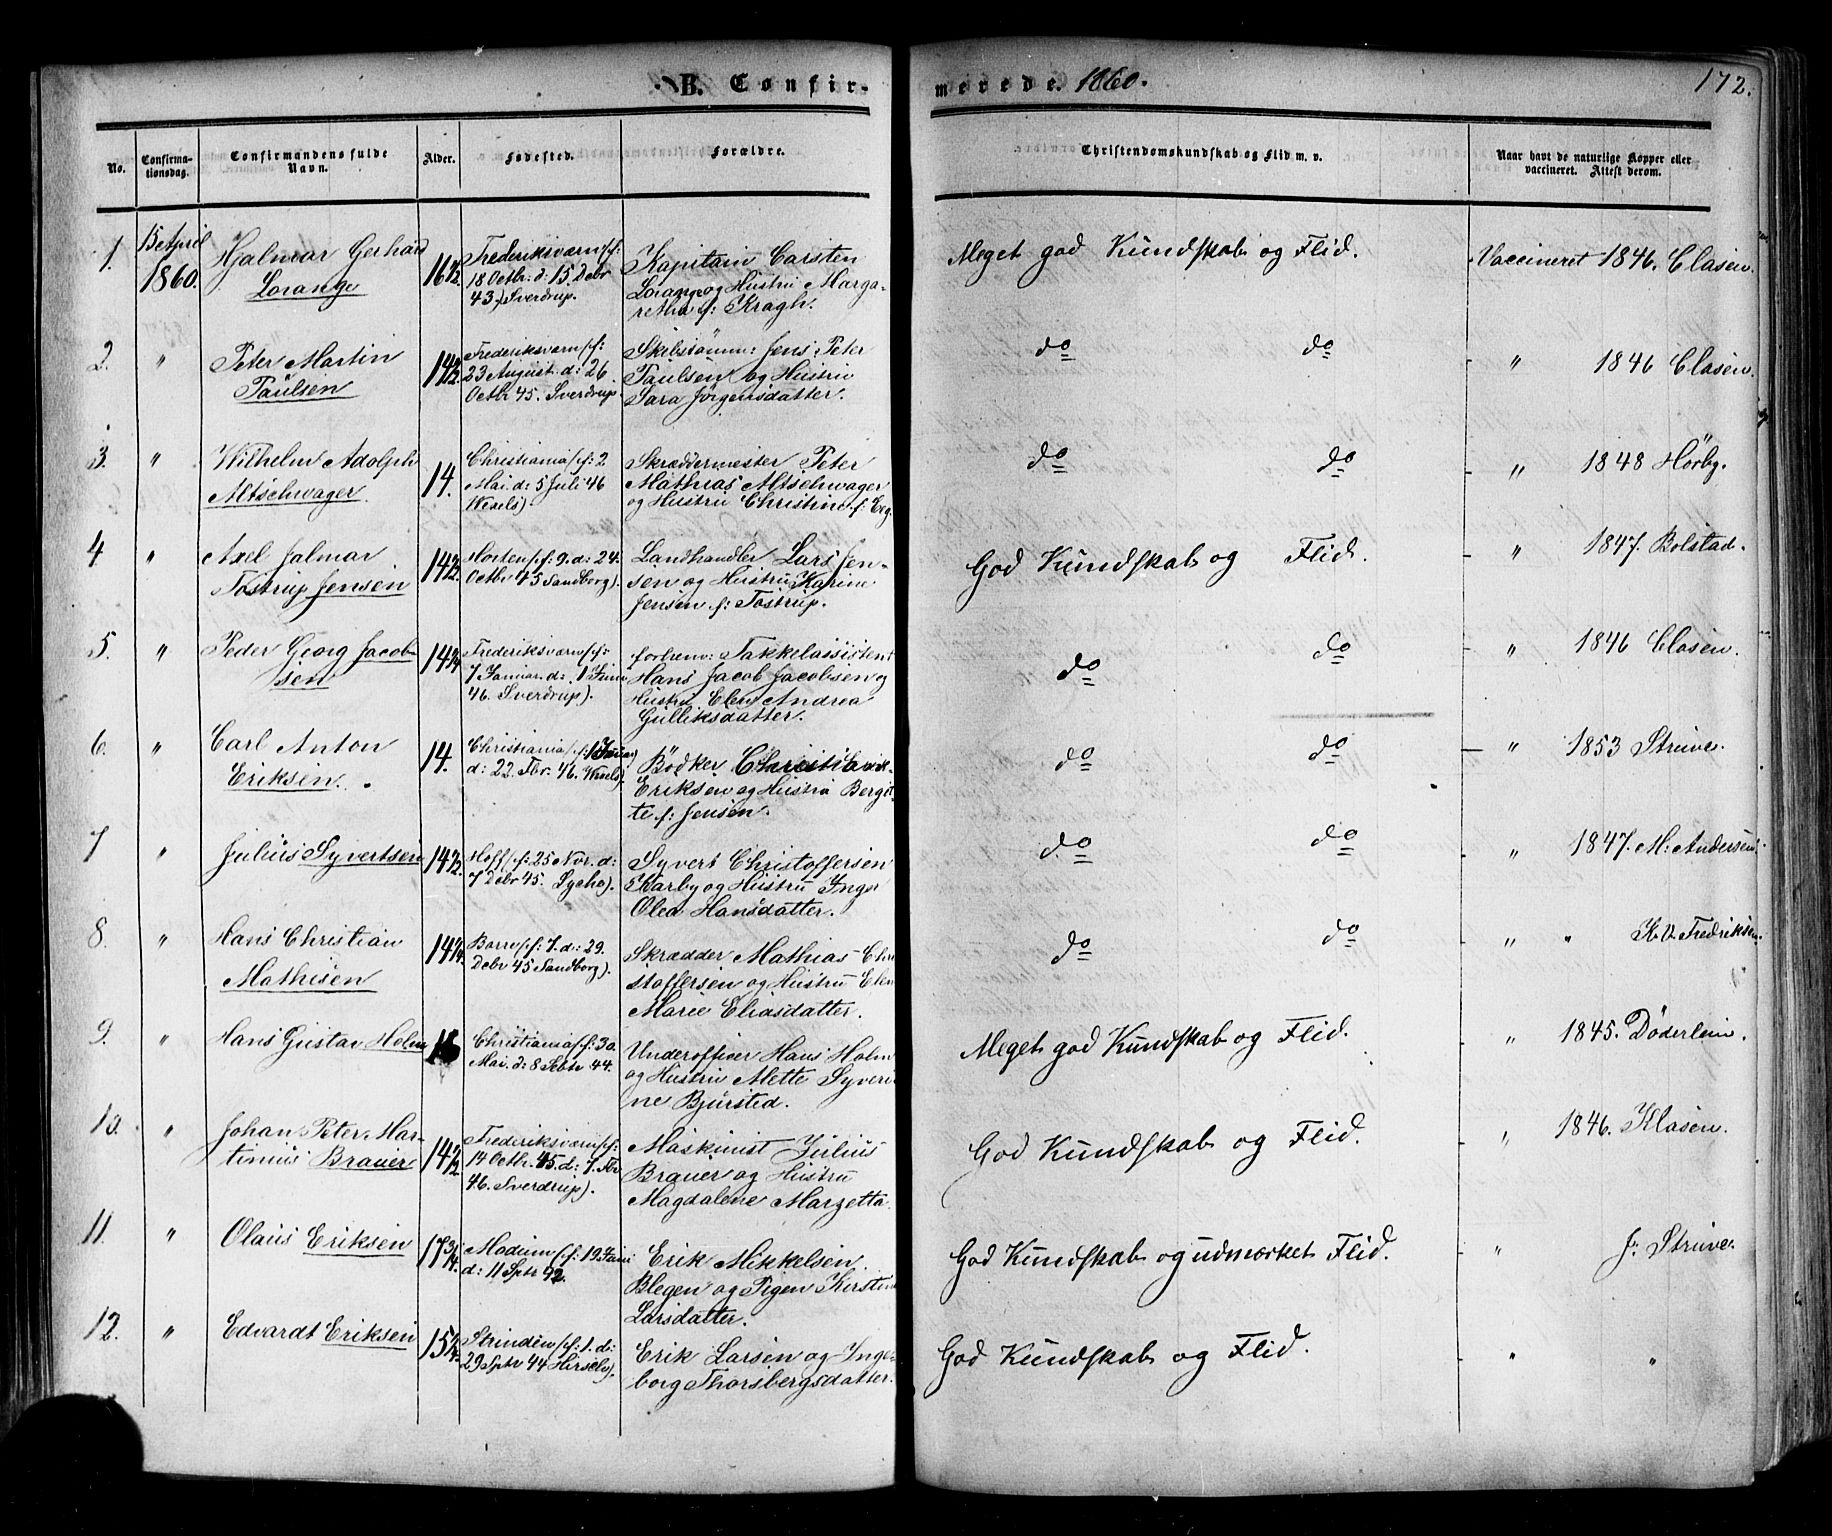 B. Confir-
merede. 1860.
172.
No.
Confirma-
tionsdag.
Confirmandens fulde
Navn.
Alder.
Fødested.
Forældre.
Christendomskundskab og Flid m. v.
Naar havt de naturlige Kopper eller
vaccineret. Attest derom.
1.
15 April
1860.
Hjalmar Gerhard
Lorange
16 1/2
Frederiksværn (f:
18 Octbr: d: 15 Debr
43) Sverdrup.
Kapitain Carsten
Lorange og Hustru Marga-
retha f: Kragh.
Meget god Kundskab og Flid.
Vaccineret 1846. Clasen.
2.
"
Peter Martin
Paulsen
14 1/2
Frederiksværn (f:
23 August d: 26
Octbr 45. Sverdrup.
Skibstømm: Jens Peter
Paulsen og Hustru
Sara Jørgensdatter.
do do
" 1846 Clasen.
3.
"
Wilhelm Adolph
Altschwager.
14.
Christiania (f: 2
Mai. d: 5 Juli 46
Wexels).
Skræddermester Peter
Mathias Altschwager
og Hustru Christine f: Erg.
do do
" 1848 Hørby.
4
"
Axel Jalmar
Tostrup Jensen
14 1/2
Horten (f: 9. d: 24.
Octbr 45 Sandborg).
Landhandler Lars Jen-
sen og Hustru Karine
Jensen f: Tostrup.
God Kundskab og Flid.
" 1847. Bolstad.
5.
"
Peder Georg Jacob-
sen
14 1/4
Frederiksværn (f:
7 Januar. d: 1 Juni
46. Sverdrup).
forhenv: Takkelassistent
Hans Jacob Jacobsen og
Hustru Elen Andrea
Gulliksdatter.
do do
" 1846 Clasen.
6.
"
Carl Anton
Eriksen.
14.
Christiania (f: 1 Januar
d: 22. Fbr. 46. Wexels)
Bødker Christian
Eriksen og Hustru Bergit-
te f: Jensen.
do do
" 1853 Struve.
7
"
Julius Syvertsen
14 1/2
Hoff (f: 25 Nov. d:
7 Debr 45. Lyche).
Syvert Christoffersen
Karby og Hustru Inger
Olea Hansdatter.
do do
" 1847. M: Andersen.
8.
"
Hans Christian
Mathisen
14 1/4
Borre (f: 7. d: 29.
Debr 45 Sandborg).
Skrædder Mathias Chri
stoffersen og Hustru Elen
Marie Eliasdatter.
do do
" " K. V. Fredriksen.
9.
"
Hans Gustav Holm
Christiania (f: 30
Mai. d: 8 Septr 44.
Underofficer Hans Holm
og Hustru Mette Syveri
ne Bjursted.
Meget god Kundskab og Flid.
" 1845. Døderlein.
10.
"
Johan Peter Mar-
tinius Brauer
14 1/2
Frederiksværn (f:
14 Octbr. 45. d: 7. Fbr
46. Sverdrup).
Maskinist Julius
Brauer og Hustru
Magdalene Margetta
God Kundskab og Flid.
" 1846. Klasen.
11.
"
Olaus Eriksen
17 3/4.
Modum (f: 19 Juni
d: 11 Sptr 42.
Erik Mikkelsen
Blegen og Pigen Kirstine
Larsdatter.
God Kundskab og udmærket Flid.
" J: Struve.
12.
"
Edvardt Eriksen
15 1/4.
Strinden (f: 1. d:
29 Sptr 44 Hirsch).
Erik Larsen og Inge-
borg Thorsbergsdatter.
God Kundskab og Flid.
" "